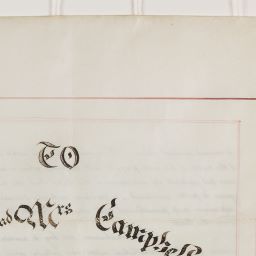 TO
Mrs Campbell